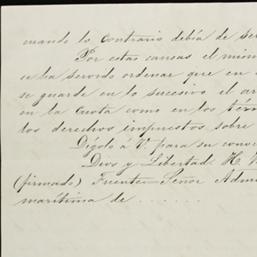 cuando lo contrario debía de ser
Por estas causas el mism
se ha servido ordenar que en
se guarde en lo sucesivo el ar
en la cuota como en los térm
los derechos impuestos sobre
Dígolo á V. para su cono
Dios y Libertad. H. V
(firmado) Fuente=Señor Admi
marítima de . . . . . .